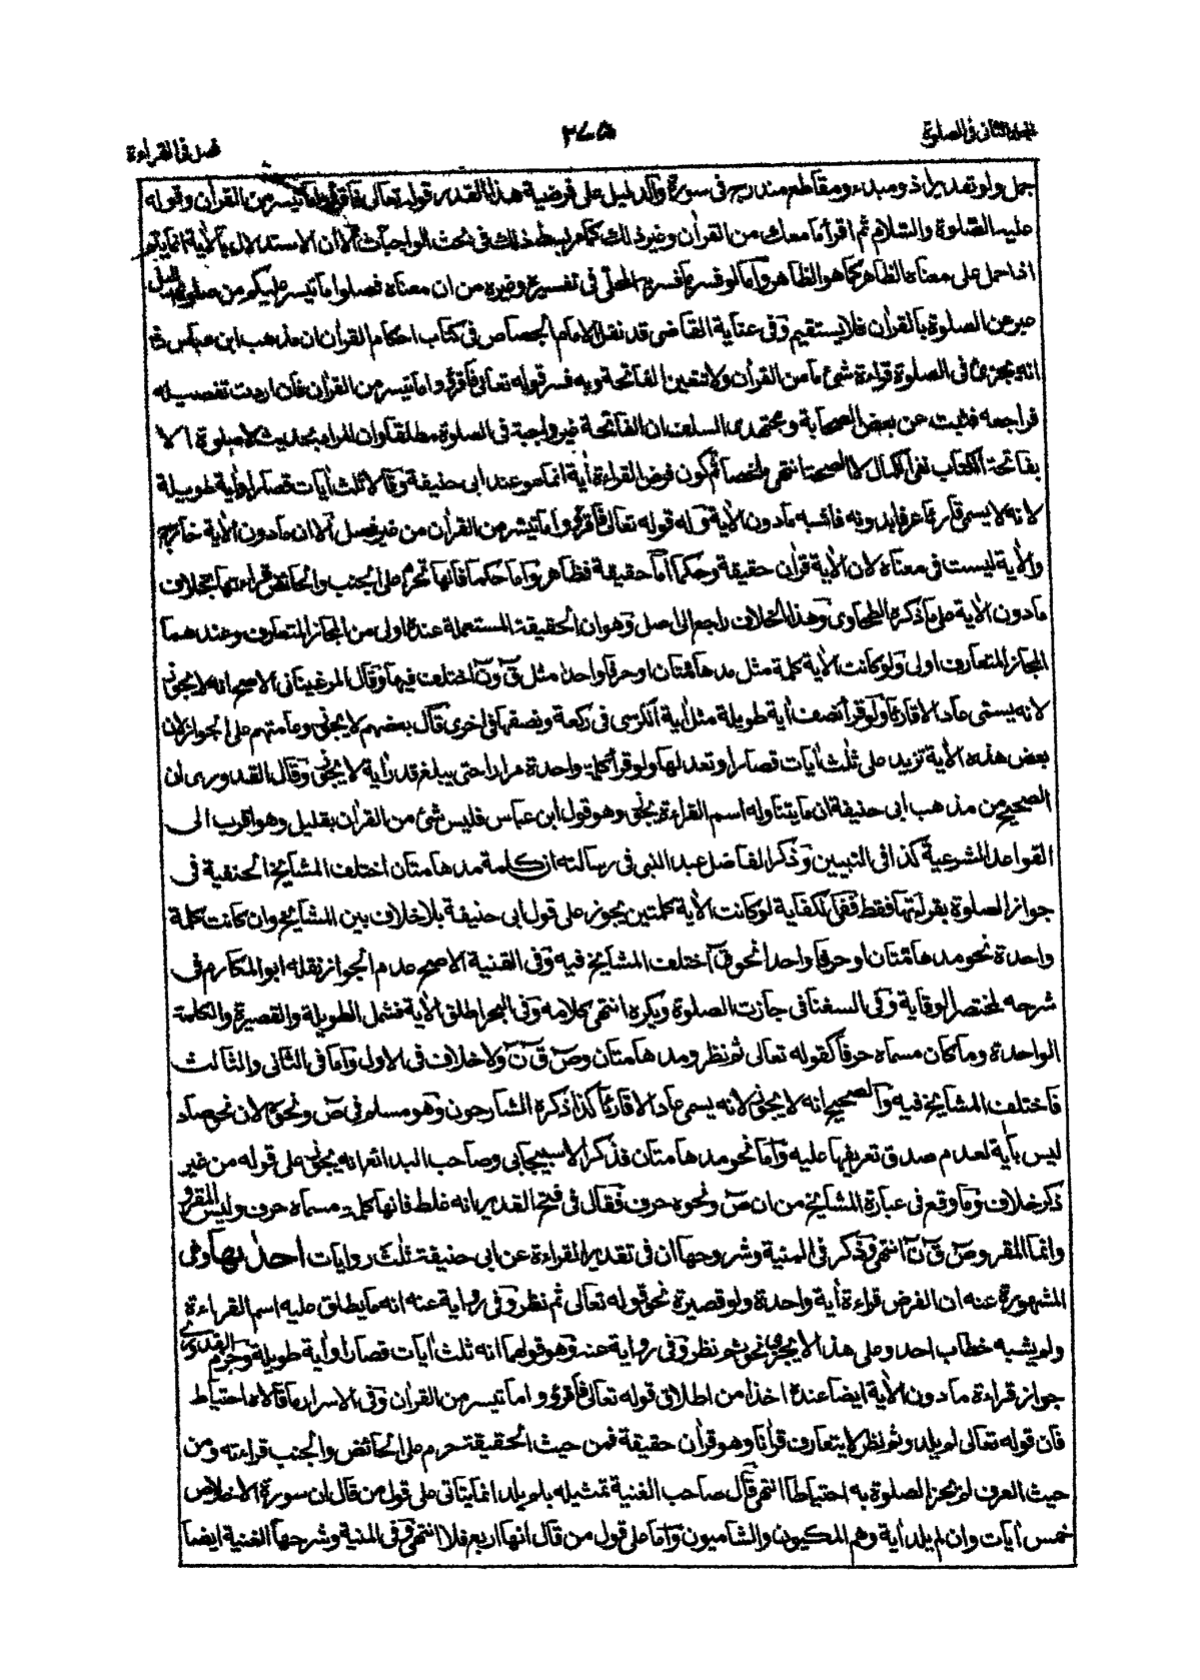 المجلد الثانى فى الصلوة
٢٧٥
فصل فى القراءة
جمل ولو تقديرا ذو مبدء ومقاطع مندرج فى سورة والدليل على فرضية هذا القدر قوله تعالى فاقرؤا ما تيسر من القرأن وقوله
عليه الصلوة والسلام ثم اقرأ ما معك من القرأن وغير ذلك كما مر بسط ذلك فى بحث الواجبات الا ان الاستدلال بالأية انما يتم
اذا حمل على معناه الظاهر كما هو الظاهر واما لو فسر كما فسره المحلى فى تفسيره وغيره من ان معناه فصلوا ما تيسر عليكم من صلوة الليل
عبر عن الصلوة بالقرأن فلا يستقيم وفى عناية القاضى قد نقل الامام الجصاص فى كتاب احكام القرأن ان مذهب ابن عباس رض
انه يجزئ فى الصلوة قراءة شئ ما من القرأن ولا تتعين الفاتحة وبه فسر قوله تعالى فاقرؤا ما تيسر من القرأن فان اردت تفصيله
فراجعه فثبت عن بعض الصحابة ومجتهدى السلف ان الفاتحة غير واجبة فى الصلوة مطلقا وان المراد بحديث لا صلوة الا
بفاتحة الكتاب نفى الكمال لا الصحة انتهى ملخصا ثم كون فرض القراءة أية انما هو عند ابى حنيفة وقالا ثلث أيات قصار او أية طويلة
لانه لا يسمى قارئا عرفا بدونه فاشبه ما دون الأية وله قوله تعالى فاقرؤا ما تيسر من القرأن من غير فصل الا ان ما دون الأية خارج
والأية ليست فى معناه لان الأية قرأن حقيقة وحكما اما حقيقة فظاهر واما حكما فانها تحرم على الجنب والحائض قراءتها بخلاف
ما دون الأية على ما ذكره الطحاوى وهذا الخلاف راجع الى اصل وهو ان الحقيقة المستعملة عنده اولى من المجاز المتعارف وعندهما
المجاز المتعارف اولى ولو كانت الأية كلمة مثل مدهامتان او حرفا واحدا مثل ق ون اختلف فيها وقال المرغينانى الاصح انه لا يجوز
لانه يسمى عادا لا قارئا ولو قرأ نصف أية طويلة مثل أية الكرسى فى ركعة ونصفها فى اخرى قال بعضهم لا يجوز وعامتهم على الجواز لان
بعض هذه الأية تزيد على ثلث أيات قصار او تعدلها ولو قرأ كلمة واحدة مرارا حتى يبلغ قدر أية لا يجوز وقال القدورى ان
الصحيح من مذهب ابى حنيفة ان ما يتناوله اسم القراءة يجوز وهو قول ابن عباس فليس شئ من القرأن بقليل وهو اقرب الى
القواعد الشرعية كذا فى التبيين وذكر الفاضل عبد النبى فى رسالته ان كلمة مدهامتان اختلف المشايخ الحنفية فى
جواز الصلوة بقراءتها فقط ففى الكفاية لو كانت الأية كلمتين يجوز على قول ابى حنيفة بلا خلاف بين المشايخ وان كانت كلمة
واحدة نحو مدهامتان او حرفا واحدا نحو ق اختلف المشايخ فيه وفى القنية الاصح عدم الجواز نقله ابو المكارم فى
شرحه لمختصر الوقاية وفى السغناقى جازت الصلوة ويكره انتهى كلامه وفى البحر اطلق الأية فشمل الطويلة والقصيرة والكلمة
الواحدة وما كان مسماه حرفا كقوله تعالى ثم نظر ومدهامتان وص ق ن ولا خلاف فى الاول واما فى الثانى والثالث
فاختلف المشايخ فيه والصحيح انه لا يجوز لانه يسمى عادا لا قارئا كذا ذكره الشارحون وهو مسلم فى ص ونحوه لان نحو صاد
ليس بأية لعدم صدق تعريفها عليه واما نحو مدهامتان فذكر الاسبيجابى وصاحب البدائع انه يجوز على قوله من غير
ذكر خلاف وما وقع فى عبارة المشايخ من ان ص ونحوه حرف فقال فى فتح القدير انه غلط فانها كلمة مسماه حرف وليس المقرو
وانما المقرو ص ق ن انتهى وذكر فى المنية وشروحها ان فى تقدير القراءة عن ابى حنيفة ثلث روايات احدٰىها وهى
المشهورة عنه ان الفرض قراءة أية واحدة ولو قصيرة نحو قوله تعالى ثم نظر وفى رواية عنه انه ما يطلق عليه اسم القراءة
ولم يشبه خطاب احد وعلى هذا لا يجزئ نحو ثم نظر وفى رواية عنه وهو قولهما انه ثلث أيات قصار او أية طويلة وجزم القدورى
جواز قراءة ما دون الأية ايضا عنده اخذا من اطلاق قوله تعالى فاقرؤا ما تيسر من القرأن وفى الاسرار ما قالاه احتياط
فان قوله تعالى لم يلد وثم نظر لا يتعارف قرأنا وهو قرأن حقيقة فمن حيث الحقيقة حرم على الحائض والجنب قراءته ومن
حيث العرف لم تجز الصلوة به احتياطا انتهى قال صاحب الغنية تمثيله بلم يلد انما يتأتى على قول من قال ان سورة الاخلاص
خمس أيات وان لم يلد أية وهم المكيون والشاميون واما على قول من قال انها اربع فلا انتهى وفى المنية وشرحها الغنية ايضا